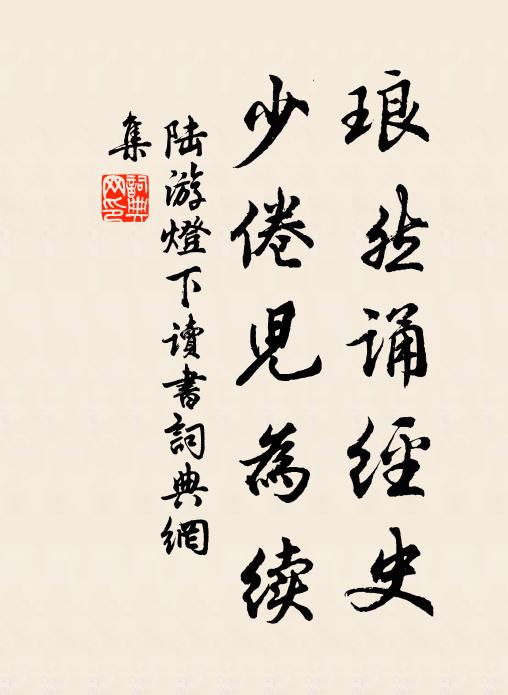 琅然诵經史
少倦兒為续
陆游燈下讀書詞典網
集
詞典網印